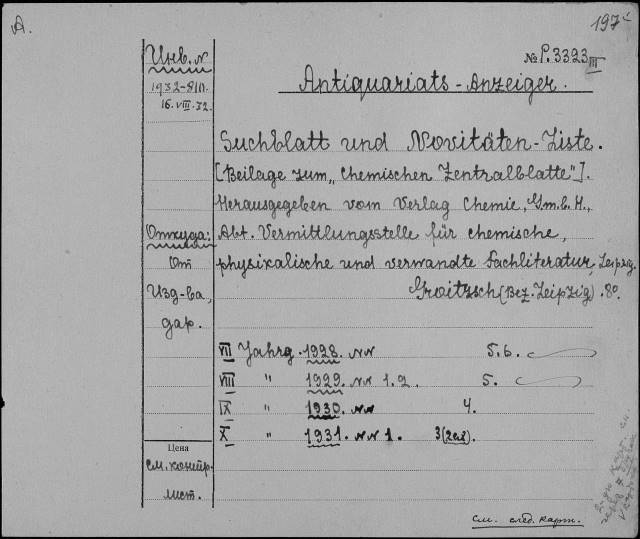 A.
197
Инв. №
№ P. 3323 III
Antiquariats-Anzeiger.
1932-8111.
16. VIII. 32.
Suchblatt und Novitäten-Liste.
[Beilage zum „Chemischen Zentralblatte"].
Herausgegeben vom Verlag Chemie, G.m.b.H.,
Откуда:
Abt. Vermittlungsstelle für chemische,
От
physikalische und verwandte Fachliteratur, Leipzg.
Изд-ва,
Groitzsch (Bez. Leipzig). 8º.
дар.
VII Jahrg. 1928. №№ 5. 6.
VIII " 1929. №№ 1. 2. 5.
IX " 1930. №№ 4.
X " 1931. №№ 1. 3 (2 экз.)
Цена
см. контр.
лист.
см. след. карт.